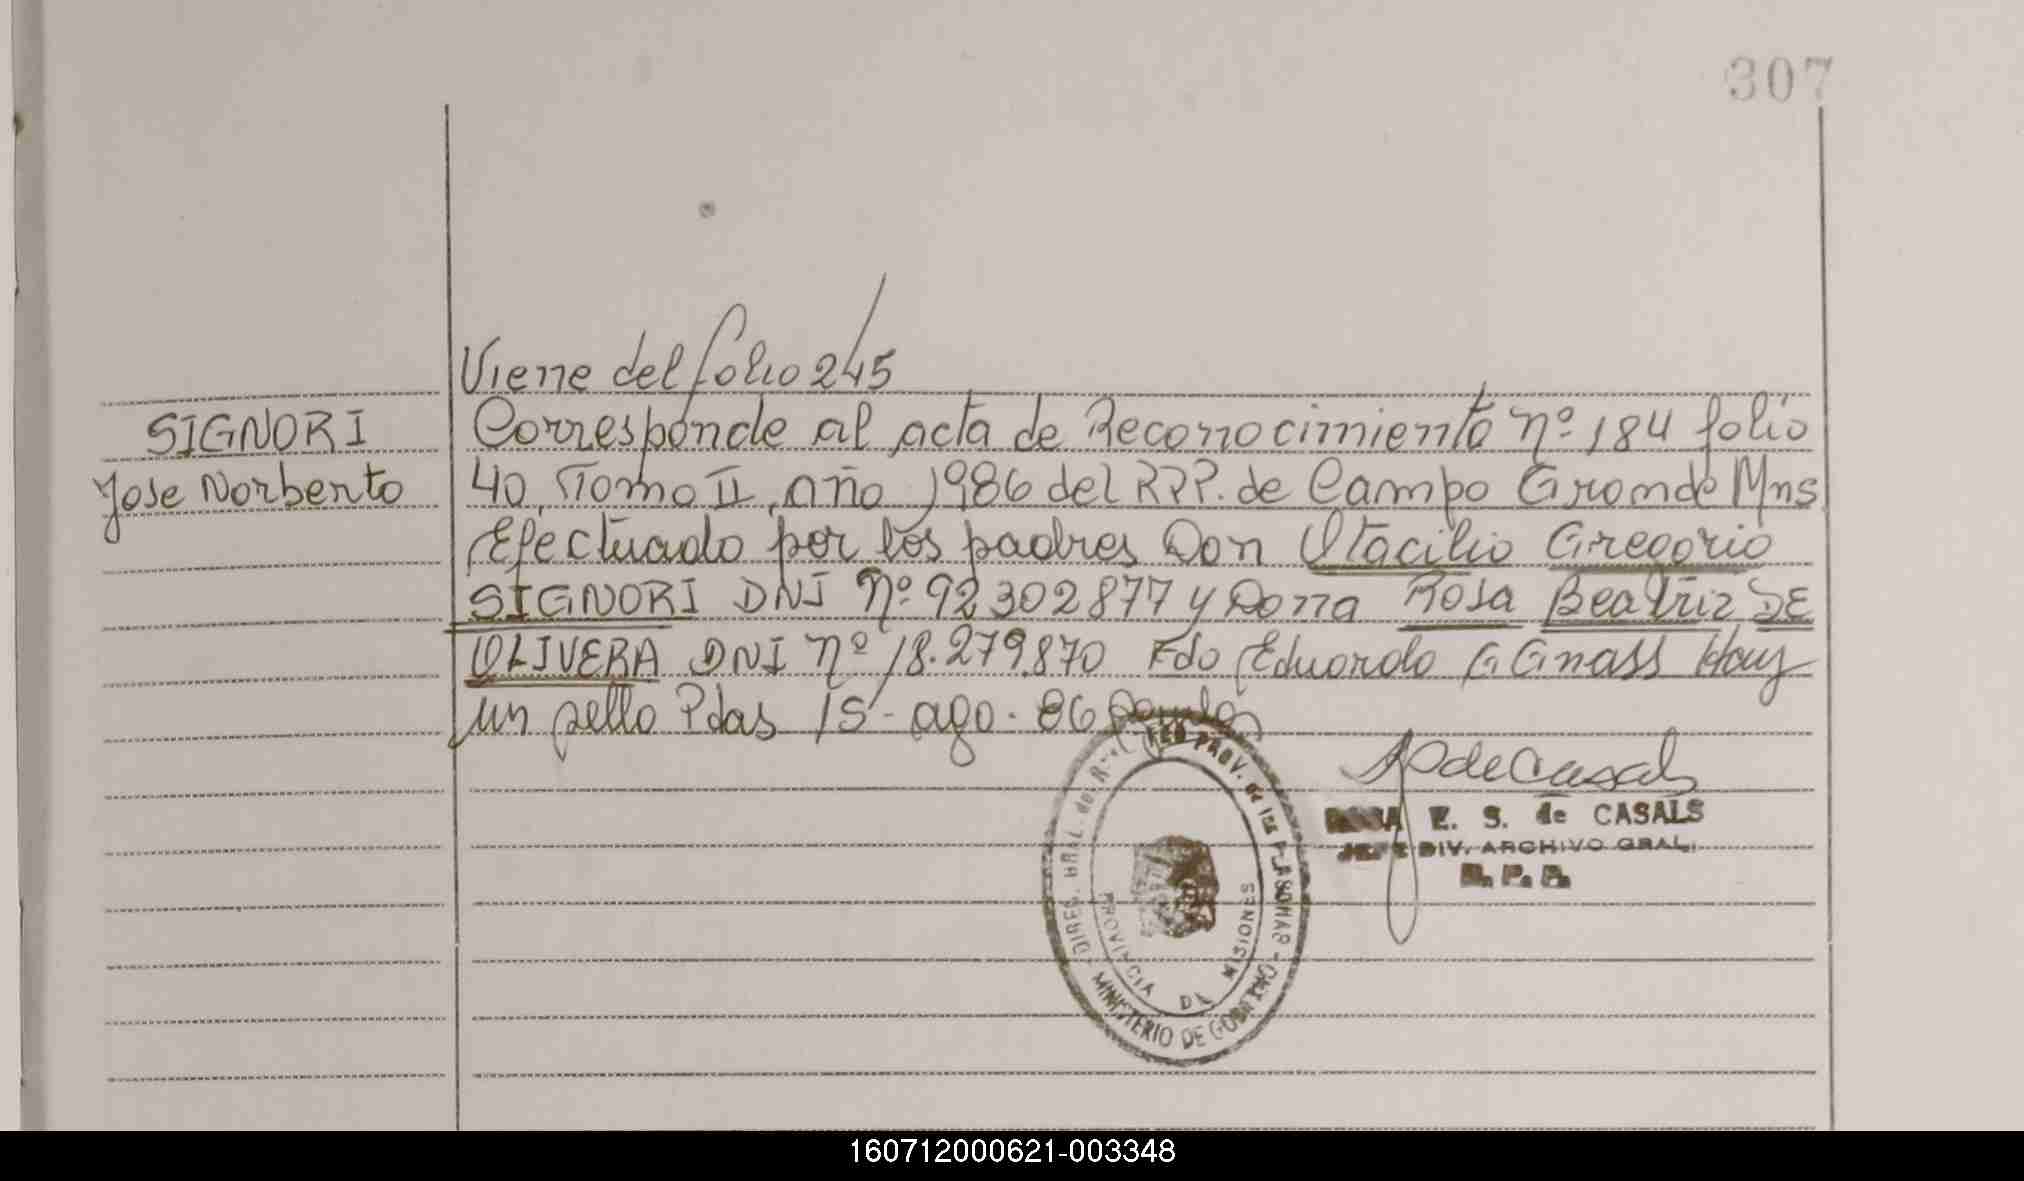 307
Viene del folio 245
SIGNORI
Jose Norberto
Corresponde al acta de Reconocimiento nº 184 folio
40, Tomo II, año 1986 del RPP. de Campo Grande Mns
Efectuado por los padres Don Otacilio Gregorio
SIGNORI DNI nº 92302877 y Donna Rosa Beatriz DE
OLIVERA DNI nº 18.279.870 Fdo Eduardo G Gnass Hay
un sello Pdas 15-ago.86
de Casals
E. S. de CASALS
DIV. ARCHIVO GRAL.
R. P. P.
DIREC. GRAL. de PROV. de las PERSONAS
MINISTERIO DE GOBIERNO
PROVINCIA DE MISIONES
160712000621-003348